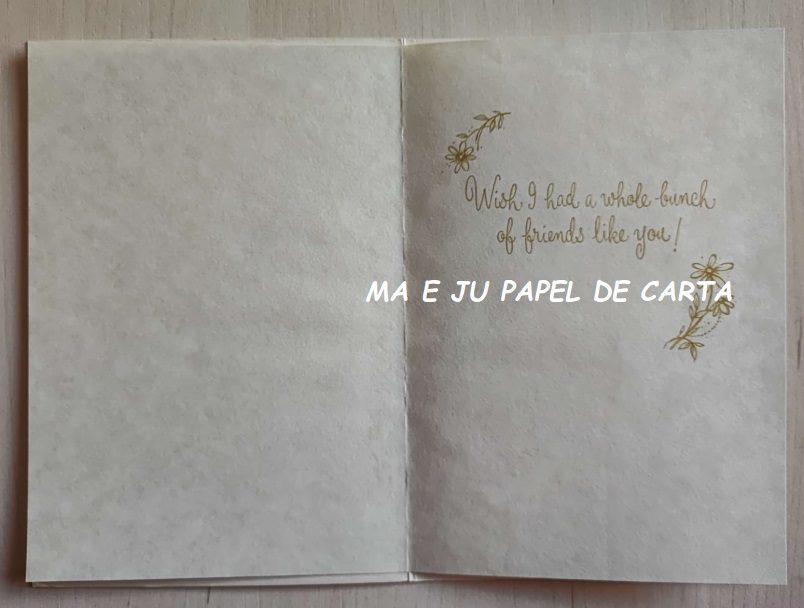 Wish I had a whole bunch
of friends like you!
MA E JU PAPEL DE CARTA